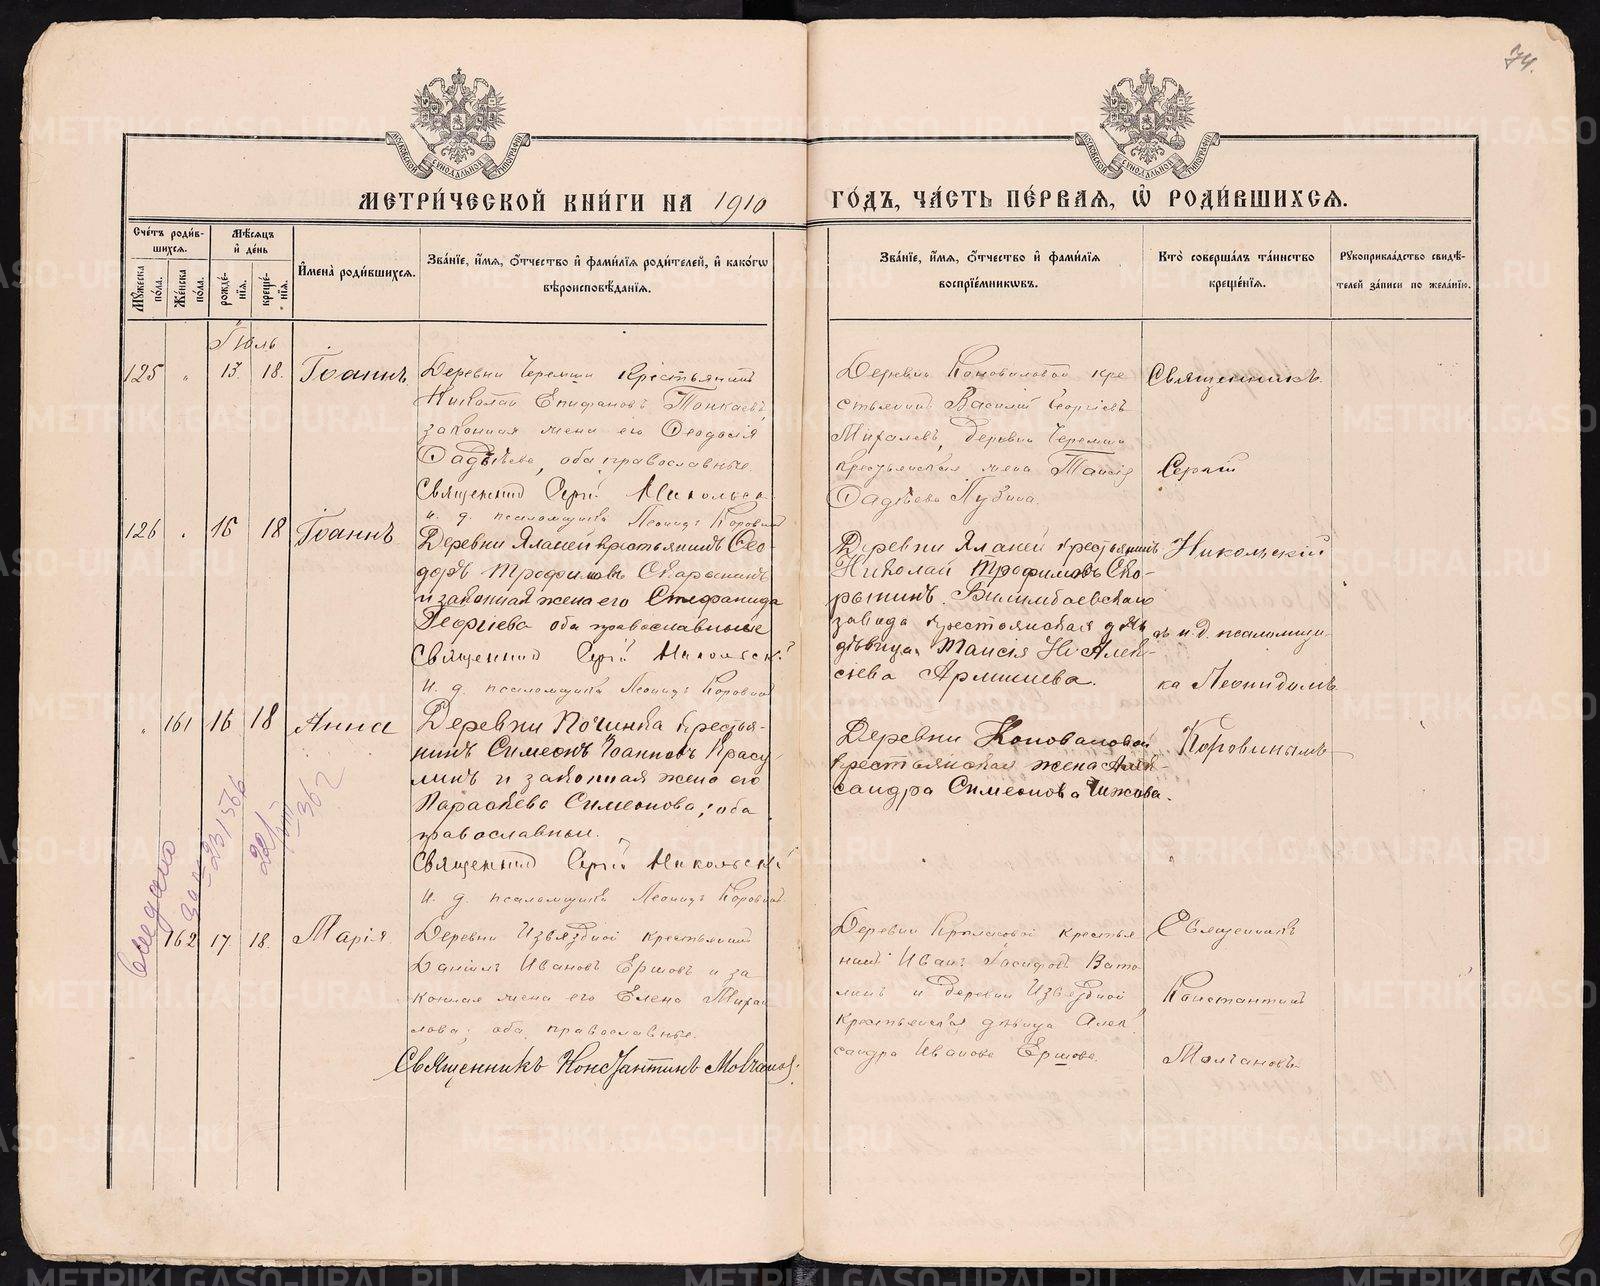 74.
МОСКОВСКОЙ СѴНОДАЛЬНОЙ ТИПОГРАФІИ
МОСКОВСКОЙ СѴНОДАЛЬНОЙ ТИПОГРАФІИ
МЕТРИ́ЧЕСКОЙ КНИ́ГИ НА 1910 ГО́ДЪ, ЧА́СТЬ ПЕ́РВАЯ, Ѿ РОДИ́ВШИХСѦ.
Сче́тъ роди́вшихся.
Мꙋ́жеска по́ла.
Же́нска по́ла.
Мѣ́сѧцъ и҆ де́нь
рожде́нїѧ.
креще́нїѧ.
И҆мена̀ роди́вшихсѧ.
Зва́нїе, и҆́мѧ, ѻ҆́тчество и҆ фами́лїѧ роди́телей, и҆ како́гѡ
вѣроисповѣ́данїѧ.
Зва́нїе, и҆́мѧ, ѻ҆́тчество и҆ фами́лїѧ
воспрїе́мникѡвъ.
Кто̀ соверша́лъ та́инство
креще́нїѧ.
Рꙋкоприкла́дство свидѣ́-
телей за́писи по жела́нїю.
Іюль
125 " 13. 18. Іоаннъ.
Деревни Черемши крестьянинъ
Николай Епифановъ
законная жена его Ѳеодосія
Ѳадѣева, оба православные.
Священник Сергій Никольскій
и. д. псаломщика Леонидъ Коровин
Деревни Коноваловой кре
стьянинъ Василій Георгіевъ
деревни Черемши
крестьянская жена Таисія
Ѳадѣева
Священникъ
Сергій
126 " 15 18 Іоаннъ.
Деревни Яланей крестьянинъ Ѳео-
доръ Трофимовъ
и законная жена его Стефанида
Георгіева оба православные
Священник Сергій Никольскій
И. д. псаломщика Леонидъ Коровин
Деревни Яланей крестьянинъ
Николай Трофимовъ Ско-
рынинъ. Билимбаевскаго
завода крестьянская
дѣвица Таисія Алек-
сіева
Никольскій
съ и. д. псаломщи-
ка Леонидомъ
Коровинымъ
" 161 16 18 Анна
Деревни Починка крестья-
нинъ Симеонъ Іоанновъ Красу-
линъ и законная жена его
Параскева Симеонова; оба
православные.
Священник Сергій Никольскій
И. д. псаломщика Леонидъ Коровин
Деревни Коноваловой
крестьянская жена Алек-
сандра Симеонова Чижова.
162 17. 18. Марія.
Деревни Извѣздной крестьянинъ
Даніилъ Ивановъ Ершовъ и за
конная жена его Елена Михаи
лова; оба православные.
Священникъ Константинъ Молчановъ.
Деревни Крыласовой крестья
нинъ Иванъ Іосифовъ Вато
линъ и деревни Извѣздной
крестьянская дѣвица Алек
сандра Иванова Ершова.
Священникъ
Константинъ
Молчановъ
METRIKI.GASO-URAL.RU